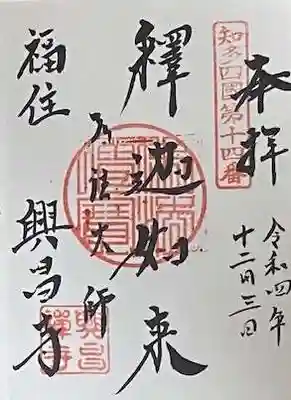 奉拝
知多四國第十四番
令和四年
十二月三日
釋迦如来
弘法大師
福住 興昌寺
興昌禅寺